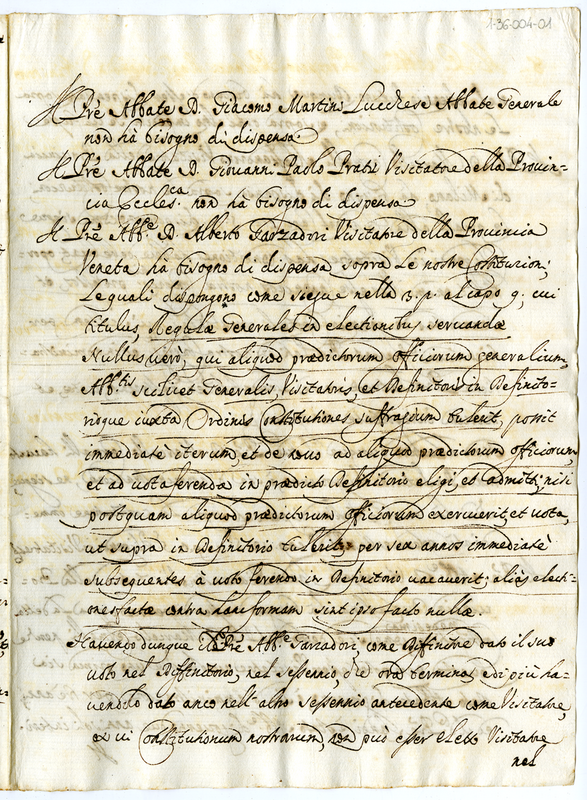 1-36-004-01
Il Pr̃e Abbate D. Giacomo Martini Lucchese Abbate Generale
non hà bisogno di dispensa.
Il Pr̃e Abbate D. Giouanni Paolo Prati Visitatore della Prouin-
cia Eccles.ca non hà bisogno di dispensa
Il Pr̃e Abb.e D. Alberto Garzadori Visitatore della Prouincia
Veneta ha bisogno di dispensa sopra le nostre Costituzioni,
le quali dispongono come siegue nella 3. p. al capo 9; cui
titulus, Regulæ Generales in electionibus seruandæ
Nullus uerò, qui aliquod prædictorum officiorum generalium,
Abb.tis scilicet Generalis, Visitatoris, et Definitoris in Definito-
rioque iuxta Ordinis Constitutiones suffragium tulerit, possit
immediatè iterum, et de nouo ad aliquod prædictorum officiorum,
et ad uota ferenda in prædicto Definitorio eligi, et admitti; nisi
postquam aliquod prædictorum officiorum exercuerit, et uota,
ut supra in Definitorio tulerit, per sex annos immediatè
subsequentes à uoto ferendo in Definitorio uacauerit; aliàs electi-
ones factæ contra hanc formam sint ipso facto nullæ.
Hauendo dunque il Pr̃e Abb.e Garzadori, come Diffinitore dato il suo
uoto nel Diffinitorio, nel sessennio, che ora termina, e di più ha-
uendolo dato anco nell'altro sessennio antecedente come Visitatore,
ex ui Constitutionum nostrarum, non può esser eletto Visitatore
nel